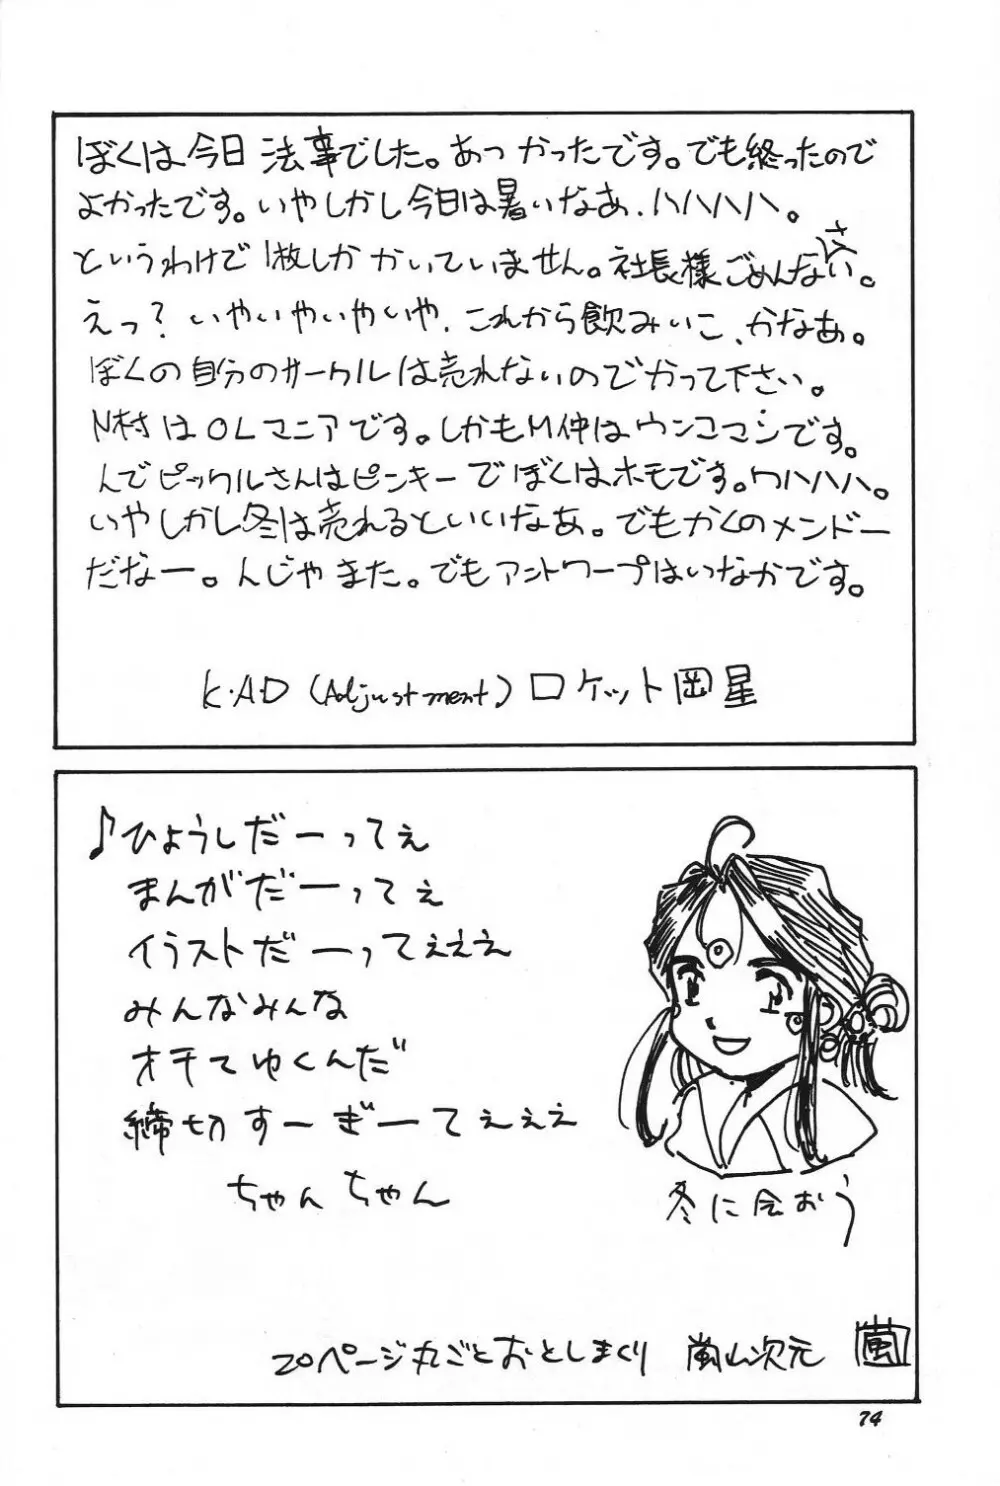 ぼくは今日法事でした。あつかったです。でも終ったので
よかったです。いやしかし今日は暑いなあ、ハハハハ。
というわけで1枚しかかいていません。社長様ごめんなさい。
えっ？いやいやいやいや、これから飲みいこ、かなあ。
ぼくの自分のサークルは売れないのでかって下さい。
N村はOLマニアです。しかもM仲はウンコマンです。
んでピックルさんはピンキーでぼくはホモです。ワハハハ。
いやしかし冬は売れるといいなあ。でもかくのメンドー
だなー。んじゃまた。でもアントワープはいなかです。
K・A・D (Adjustment) ロケット岡星
♪ひょうしだーってぇ
まんがだーってぇ
イラストだーってぇぇぇ
みんなみんな
オチてゆくんだ
締切すーぎーてぇぇぇ
ちゃんちゃん
冬に会おう
20ページ丸ごとおとしまくり 嵐山次元 嵐
74